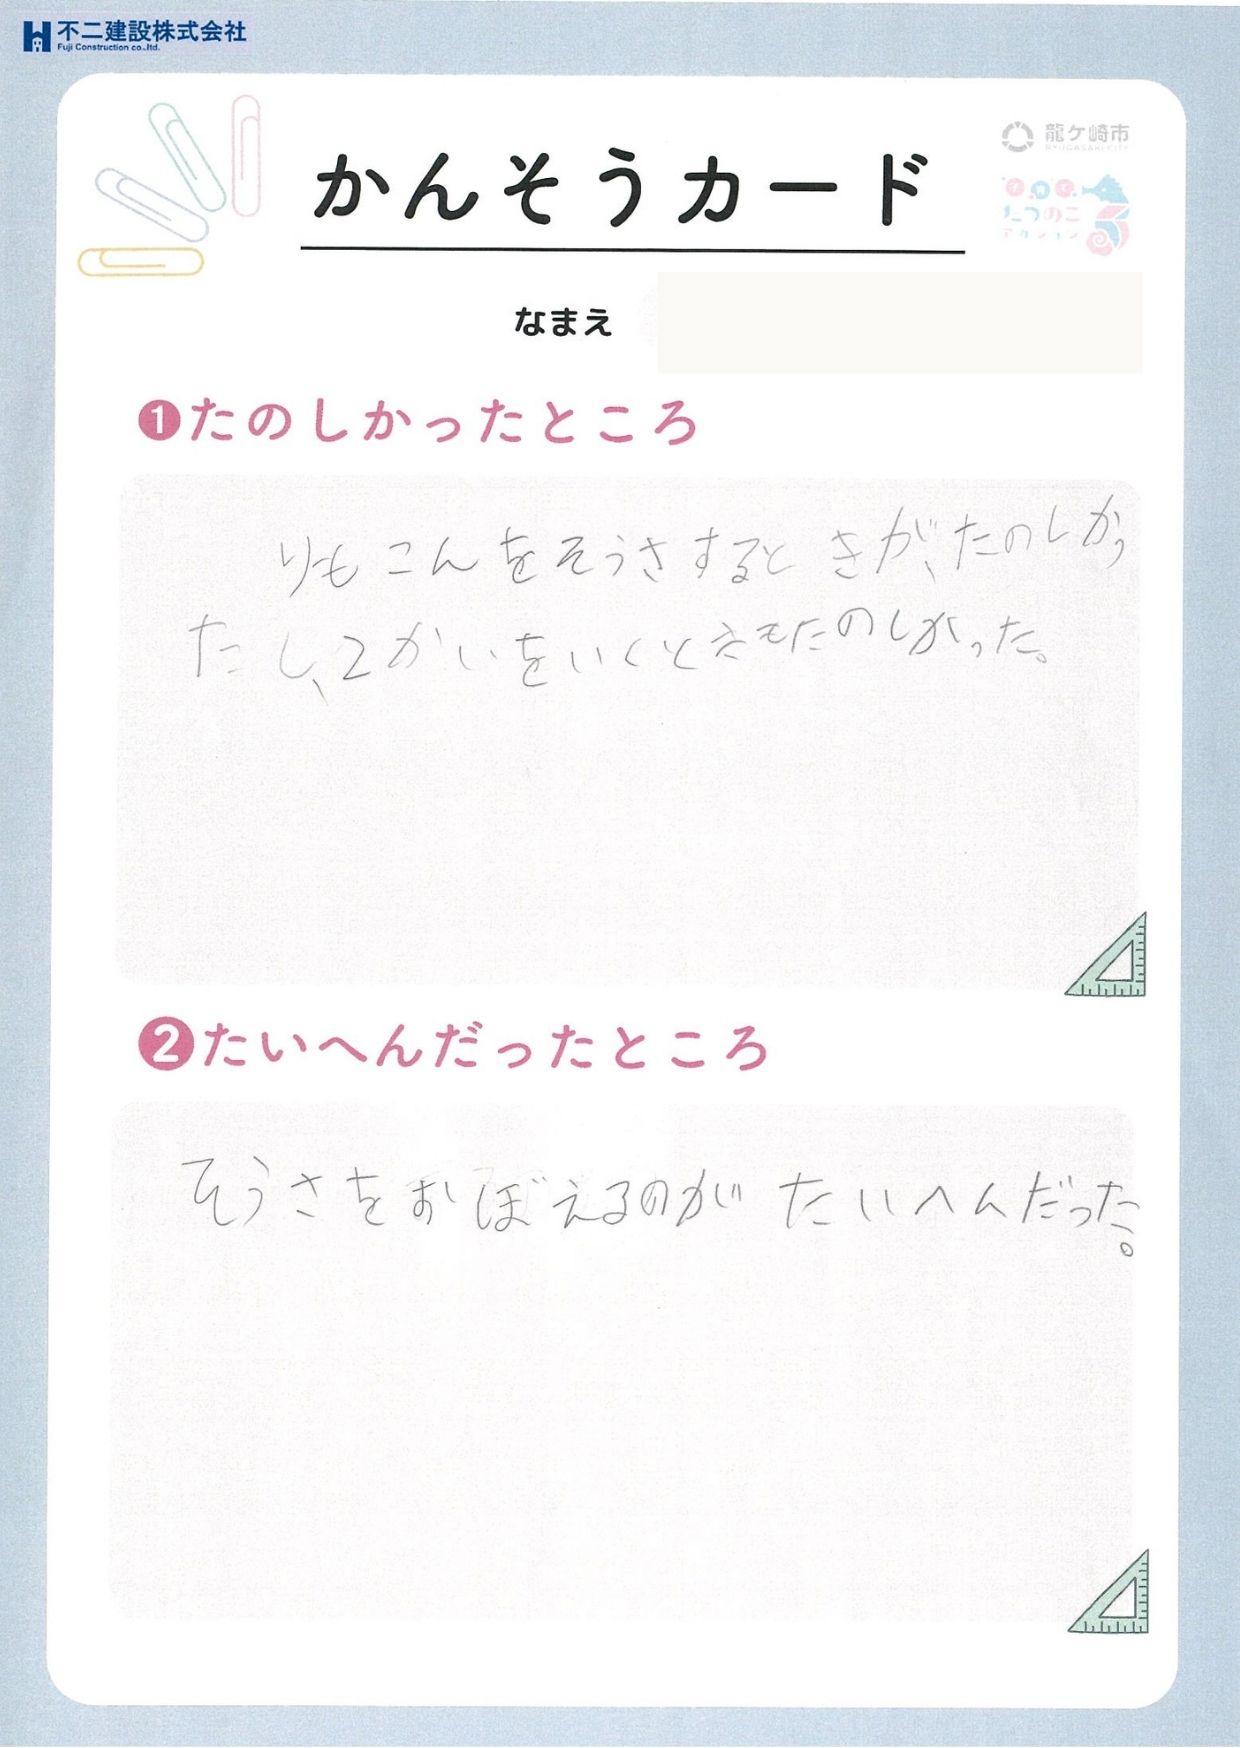 不二建設株式会社
Fuji Construction co.,ltd.
龍ケ崎市
RYUGASAKI CITY
子育て
たつのこ
アクション
かんそうカード
なまえ
❶たのしかったところ
りもこんをそうさするときが、たのしかっ
たし、2かいをいくときもたのしかった。
❷たいへんだったところ
そうさをおぼえるのが たいへんだった。